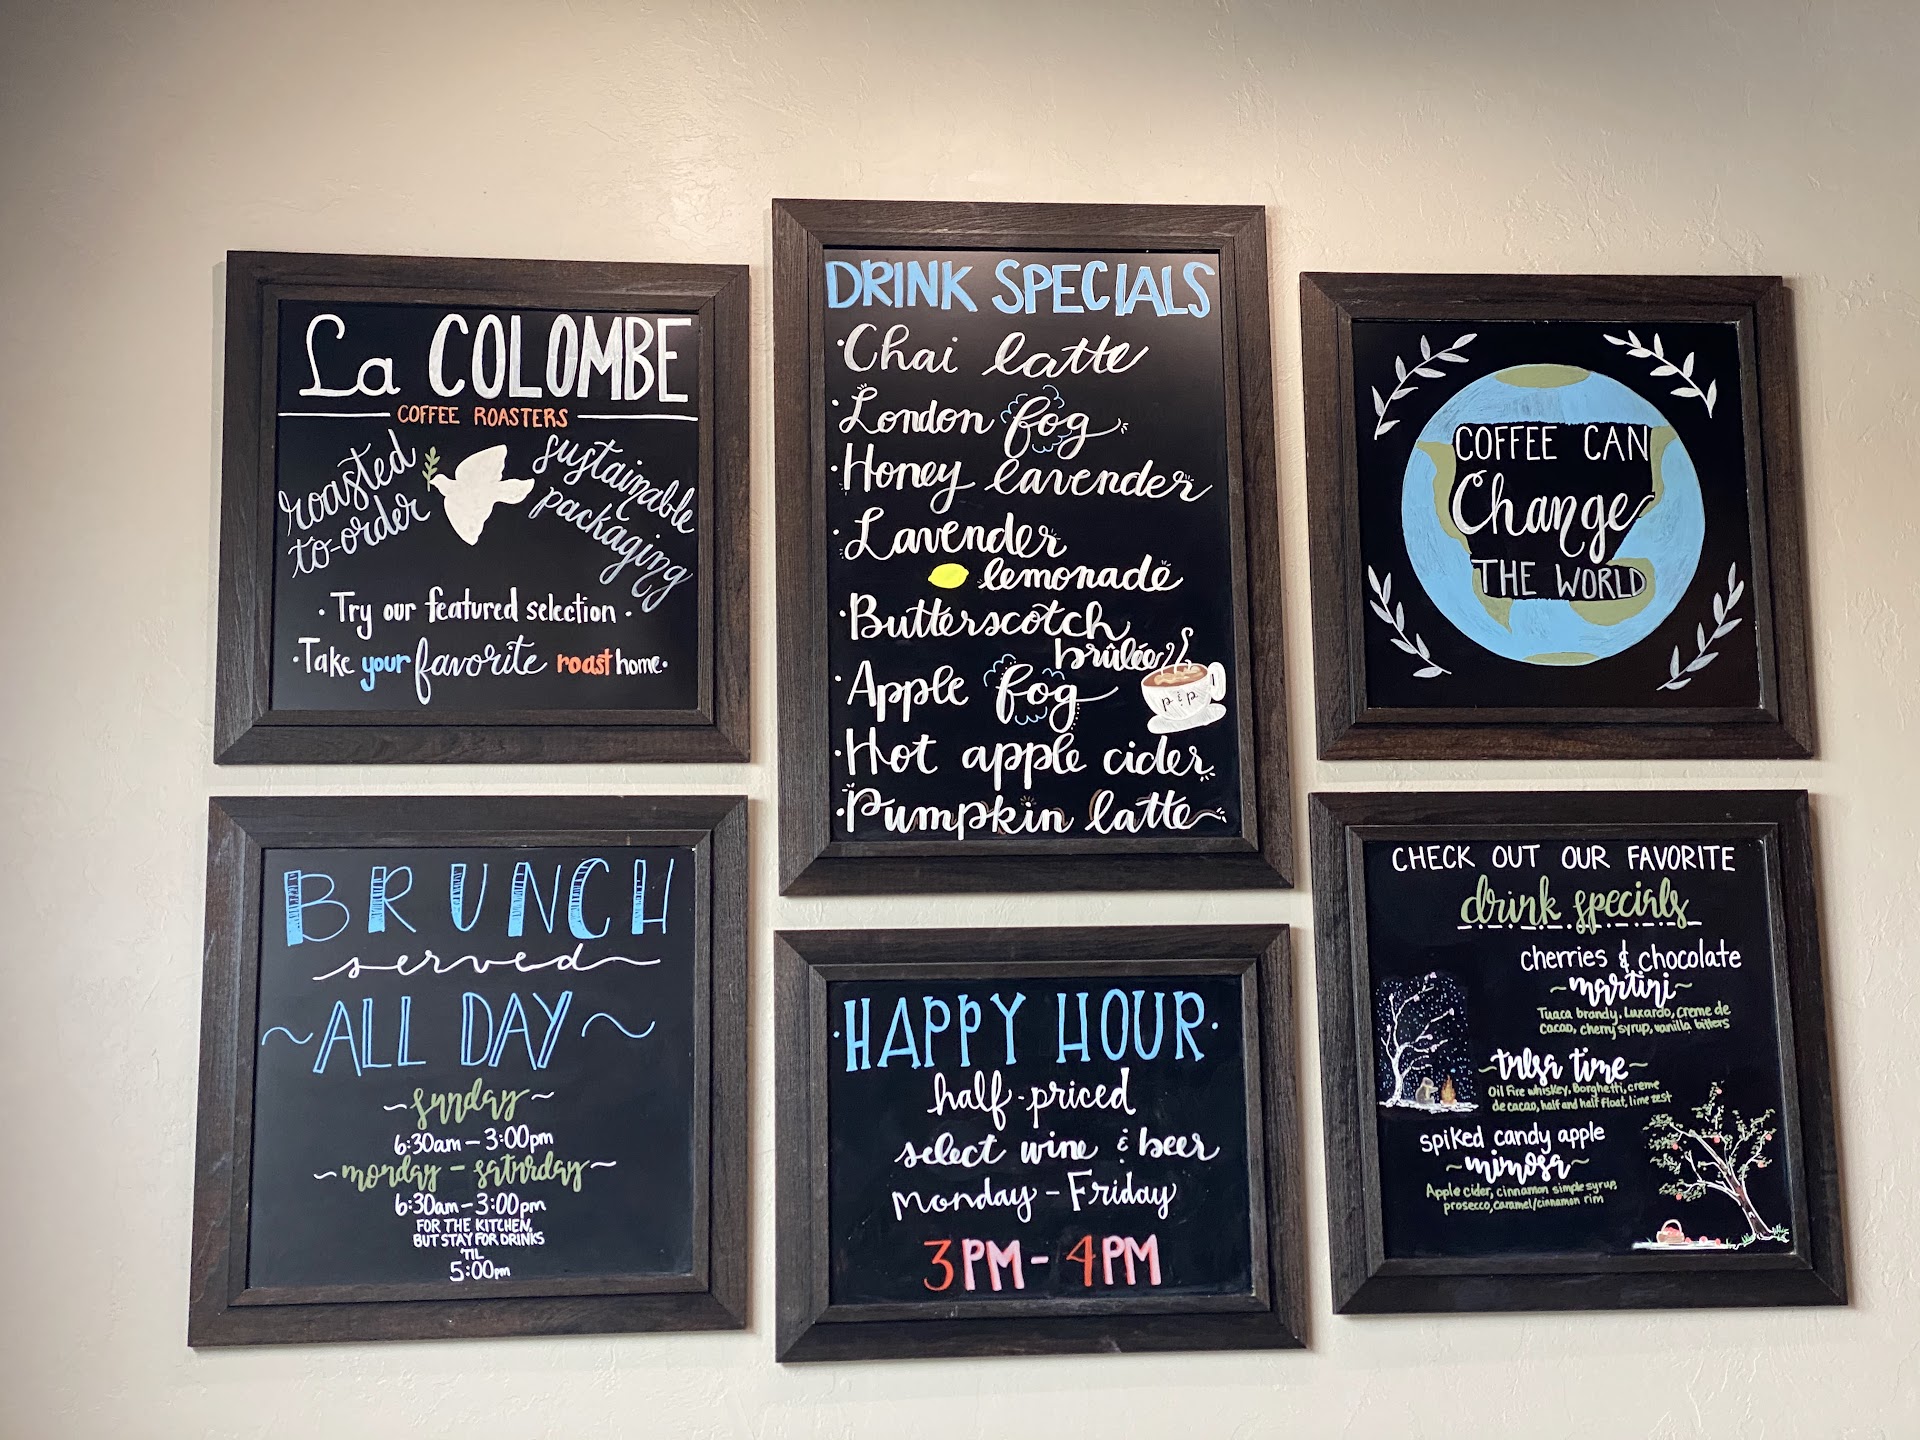 La COLOMBE
COFFEE ROASTERS
roasted
to-order
sustainable
packaging
· Try our featured selection ·
· Take your favorite roast home ·
DRINK SPECIALS
· Chai latte
· London fog
· Honey lavender
· Lavender
lemonade
· Butterscotch
brûlée
· Apple fog
P & P
· Hot apple cider
· Pumpkin latte
COFFEE CAN
Change
THE WORLD
BRUNCH
served
~ALL DAY~
~sunday~
6:30am – 3:00pm
~monday – saturday~
6:30am – 3:00pm
FOR THE KITCHEN,
BUT STAY FOR DRINKS
'TIL
5:00pm
·HAPPY HOUR·
half-priced
select wine & beer
Monday – Friday
3PM – 4PM
CHECK OUT OUR FAVORITE
drink specials
cherries & chocolate
~martini~
Tuaca brandy, Luxardo, creme de
cacao, cherry syrup, vanilla bitters
~tulsa time~
Oil Fire whiskey, Borghetti, creme
de cacao, half and half float, lime zest
spiked candy apple
~mimosa~
Apple cider, cinnamon simple syrup,
prosecco, caramel/cinnamon rim